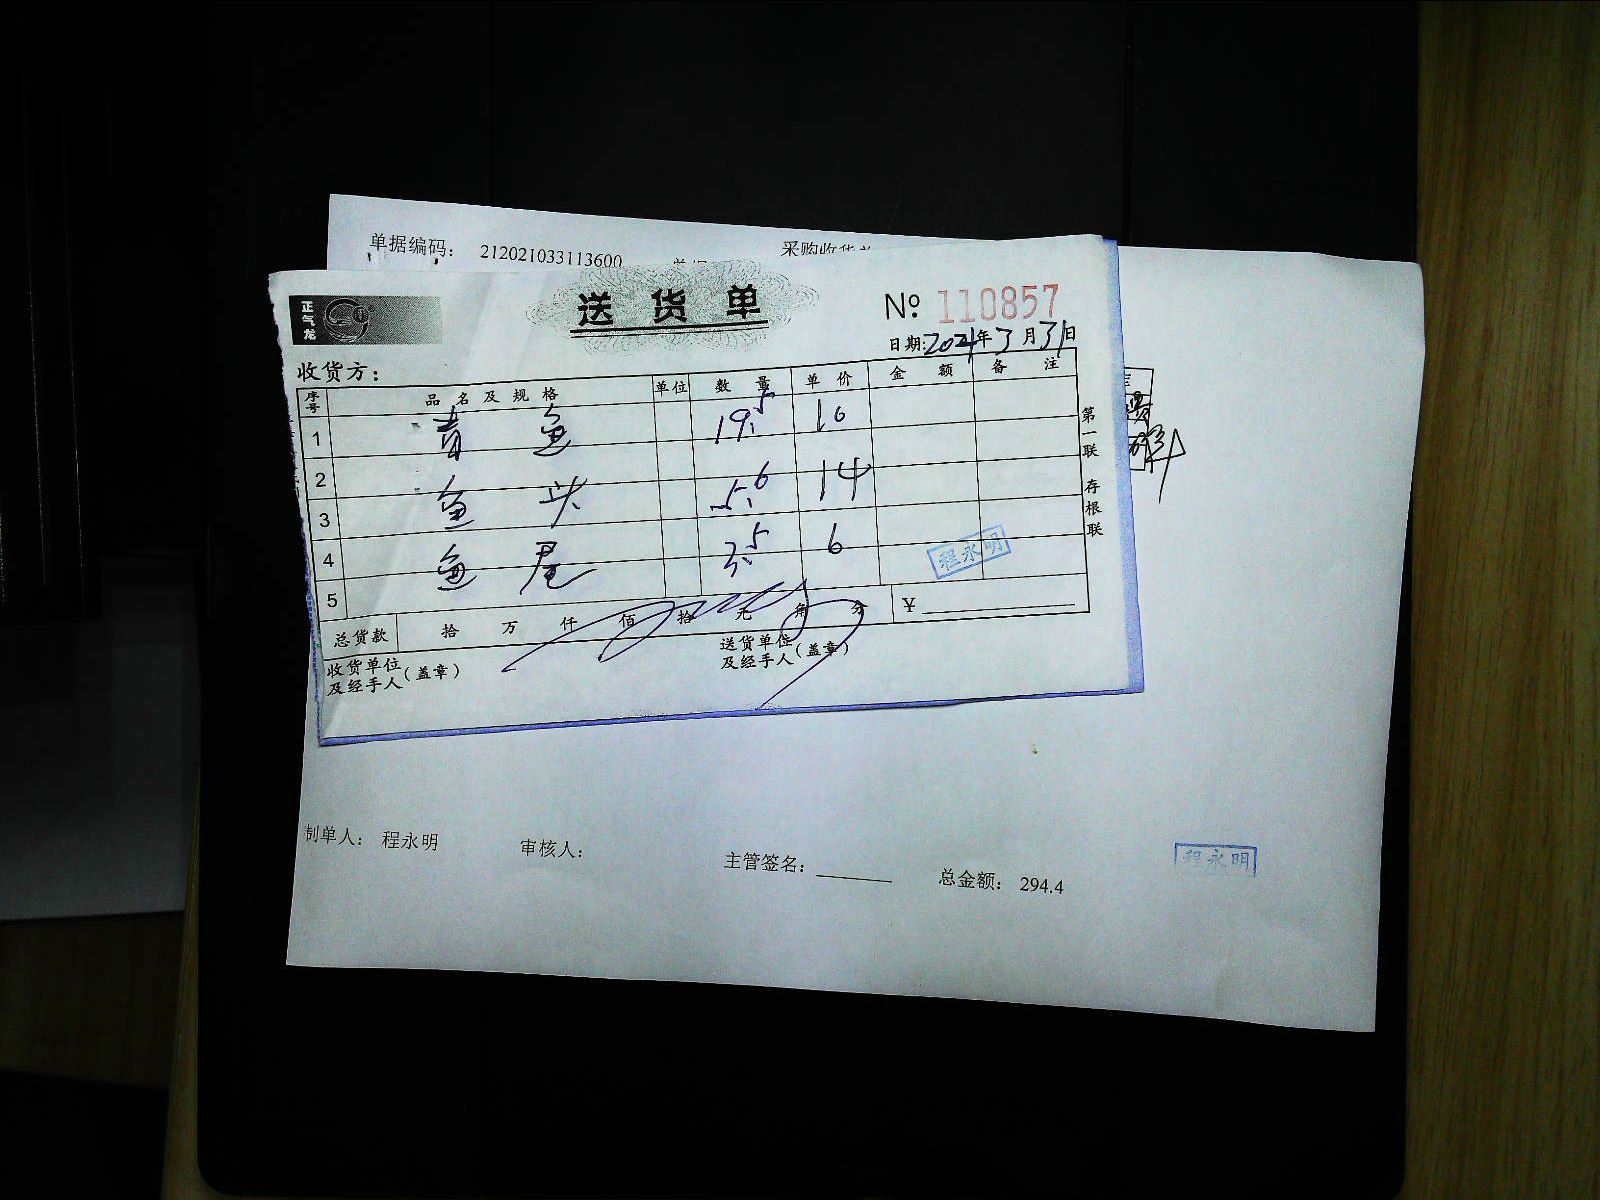 单据编码： 212021033113600 采购收货单
正气龙
送货单
№ 110857
日期: 2021年3月31日
收货方：
序号 品名及规格 单位 数量 单价 金额 备注
1 青鱼 19.5 16
2
3 鱼头 5.6 14
4 鱼尾 3.5 6
5
程永明
总货款 拾 万 仟 佰 拾 元 角 分 ￥
收货单位及经手人（盖章）
送货单位及经手人（盖章）
第一联 存根联
制单人： 程永明 审核人： 主管签名： 总金额： 294.4
程永明